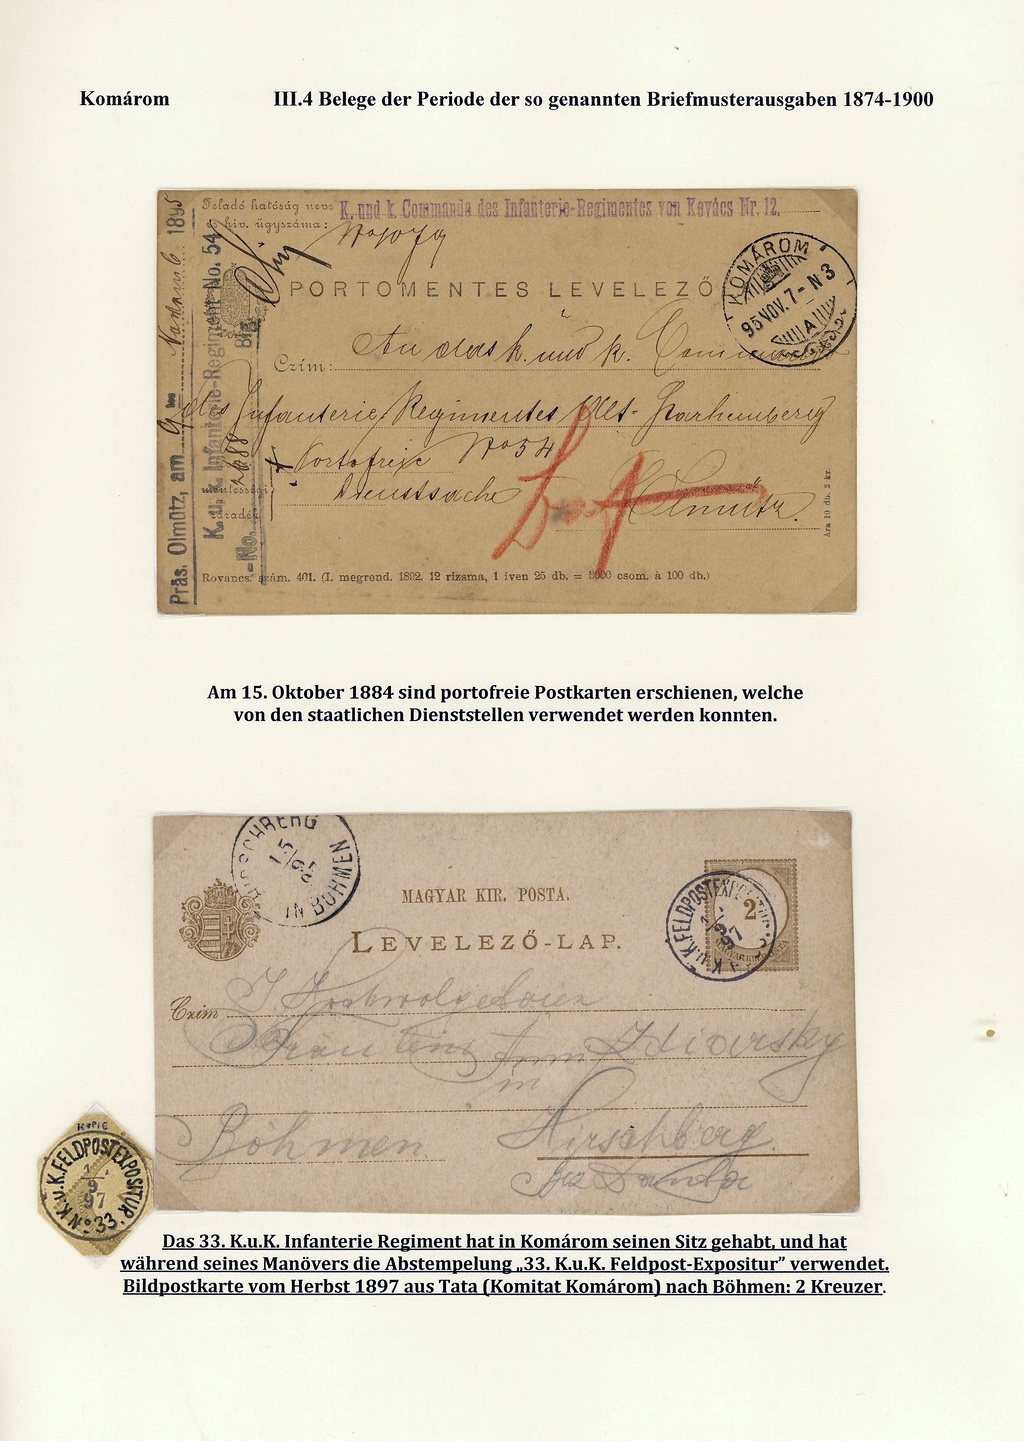 Komárom III.4 Belege der Periode der so genannten Briefmusterausgaben 1874-1900
Feladó hatóság neve K. und k. Commando des Infanterie-Regimentes von Kovács Nr. 12.
és hiv. ügyszáma:
Präs. Olmütz, am 9ten 1895
K. u. k. Infanterie-Regiment No. 54
No. 2688 Blg.
PORTOMENTES LEVELEZŐ
KOMÁROM
95 NOV. 7 - N 3
A
Czím: An das k. und k.
des Infanterie Regimentes Alt-Starhemberg
Portofreie No 54
mentességi Dienstsache Olmütz.
záradék
Ára 10 db. 2 kr.
Rovancs. szám. 401. (I. megrend. 1892. 12 rizsma, 1 iven 25 db. = 3000 csom. à 100 db.)
Am 15. Oktober 1884 sind portofreie Postkarten erschienen, welche
von den staatlichen Dienststellen verwendet werden konnten.
HIRSCHBERG
IN BÖHMEN
MAGYAR KIR. POSTA.
LEVELEZŐ-LAP.
2
K.u.K. FELDPOSTEXPOSITUR
97
Czím
Fräulein
in
Böhmen Hirschberg
KOPIE
K.u.K. FELDPOSTEXPOSITUR
1
9
97
No 33
Das 33. K.u.K. Infanterie Regiment hat in Komárom seinen Sitz gehabt, und hat
während seines Manövers die Abstempelung „33. K.u.K. Feldpost-Expositur” verwendet.
Bildpostkarte vom Herbst 1897 aus Tata (Komitat Komárom) nach Böhmen: 2 Kreuzer.